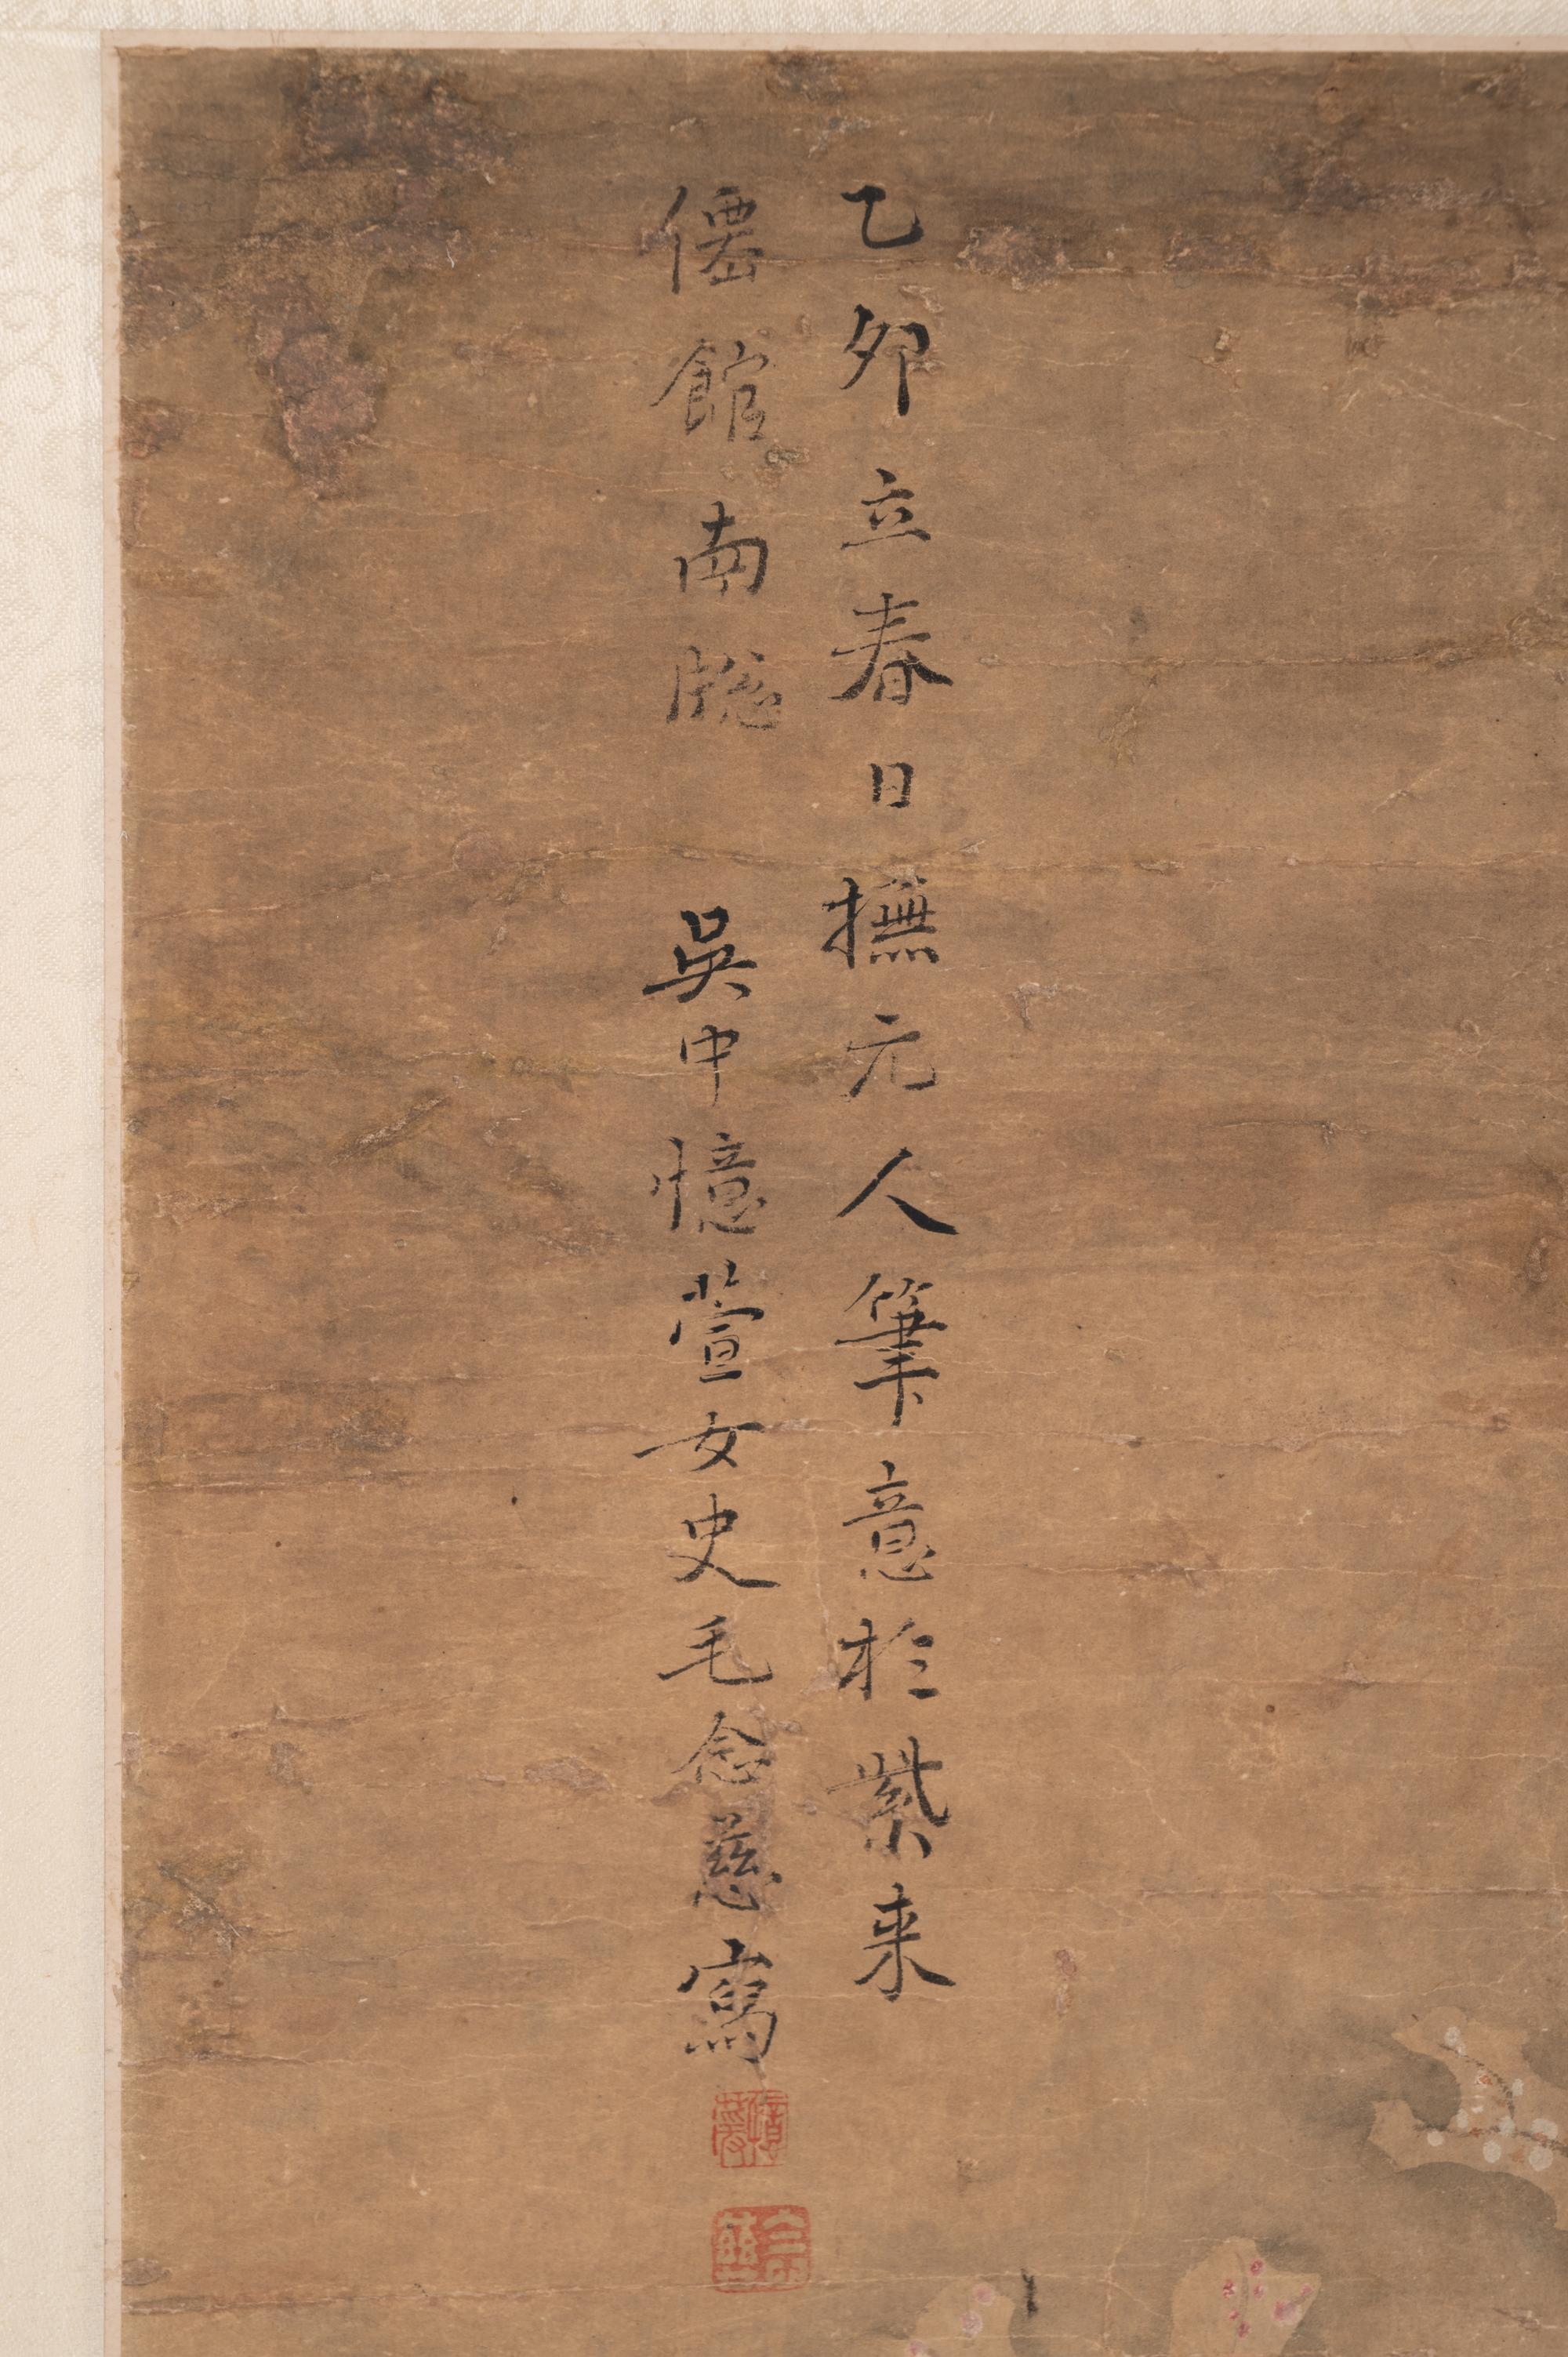 乙夘立春日撫元人筆意於紫来
僊館南牕 吳中憶萱女史毛念慈寫
憶萱
念慈